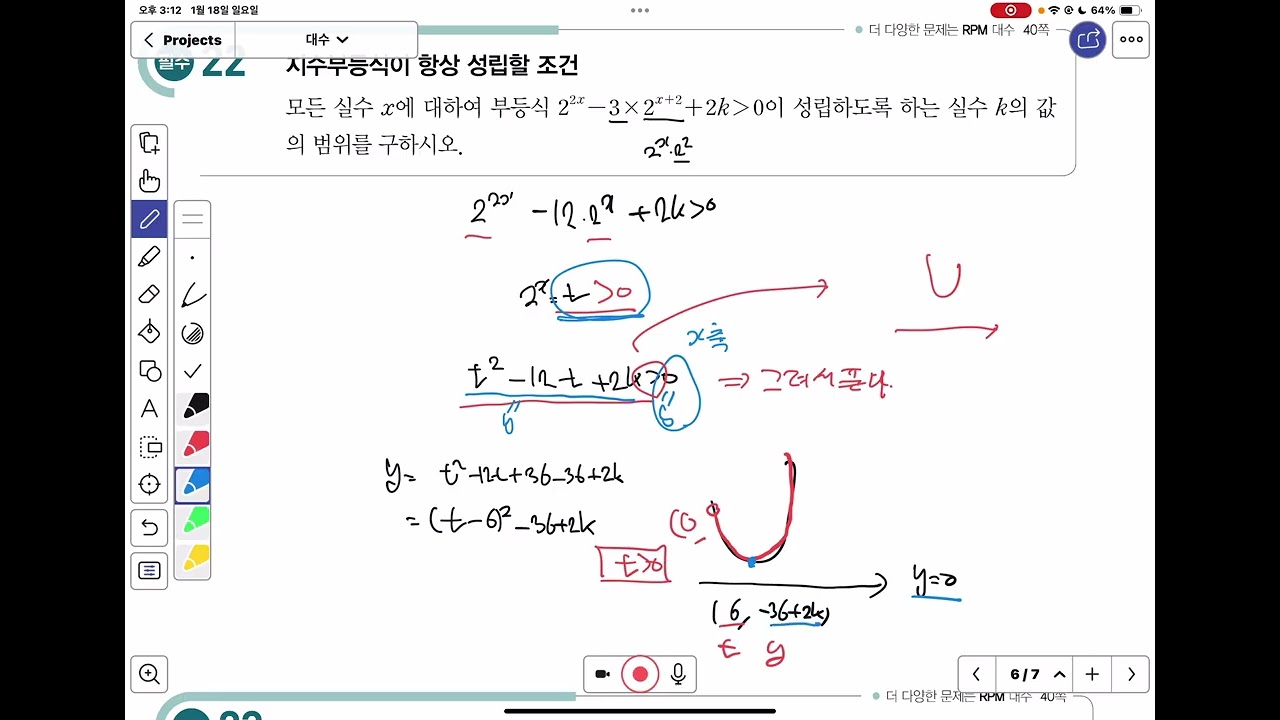 오후 3:12 1월 18일 일요일
64%
Projects
대수
더 다양한 문제는 RPM 대수 40쪽
필수 22 지수부등식이 항상 성립할 조건
모든 실수 x에 대하여 부등식 2^{2x}-3×2^{x+2}+2k>0이 성립하도록 하는 실수 k의 값
의 범위를 구하시오.
2^x·2^2
2^{2x} -12·2^x +2k>0
2^x=t>0
x축
t^2-12t+2k>0 ⇒ 그려서 푼다.
y= t^2-12t+36-36+2k
=(t-6)^2-36+2k
(0
t>0
y=0
(6, -36+2k)
t y
A
6/7
더 다양한 문제는 RPM 대수 40쪽